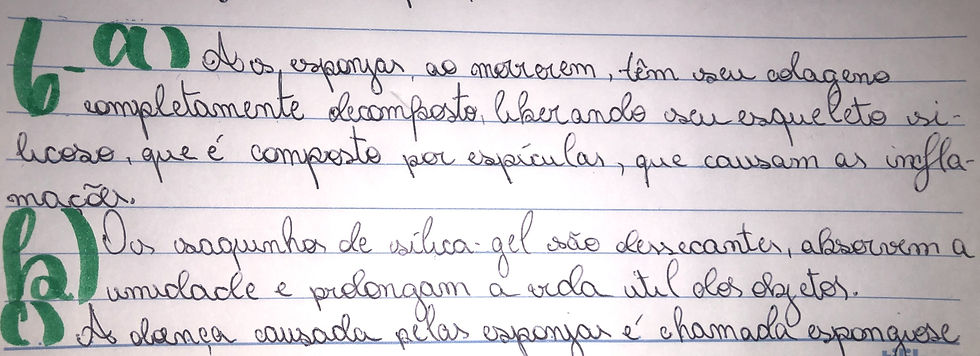 6- a) As esponjas, ao morrerem, têm seu colageno
completamente decomposto, liberando seu esqueleto si-
licoso, que é composto por espículas, que causam as infla-
mações.
b) Os saquinhos de sílica-gel são dessecantes, absorvem a
umidade e prolongam a vida útil dos objetos.
c) A doença causada pelas esponjas é chamada espongiose